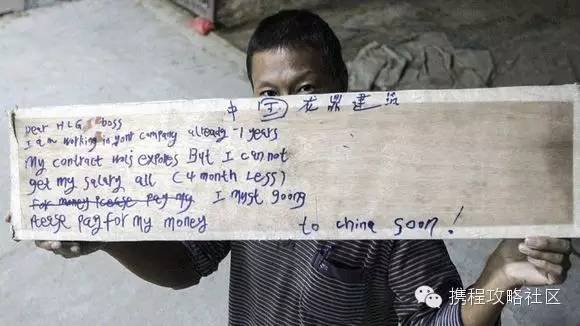 中国龙鼎建筑
Dear HLG boss
I am working in your company already -1 years
My contract was expores But I can not
get my salary all (4 month Less)
for money Please pay my I must goong
Please pay for my money to china soon!
携程攻略社区